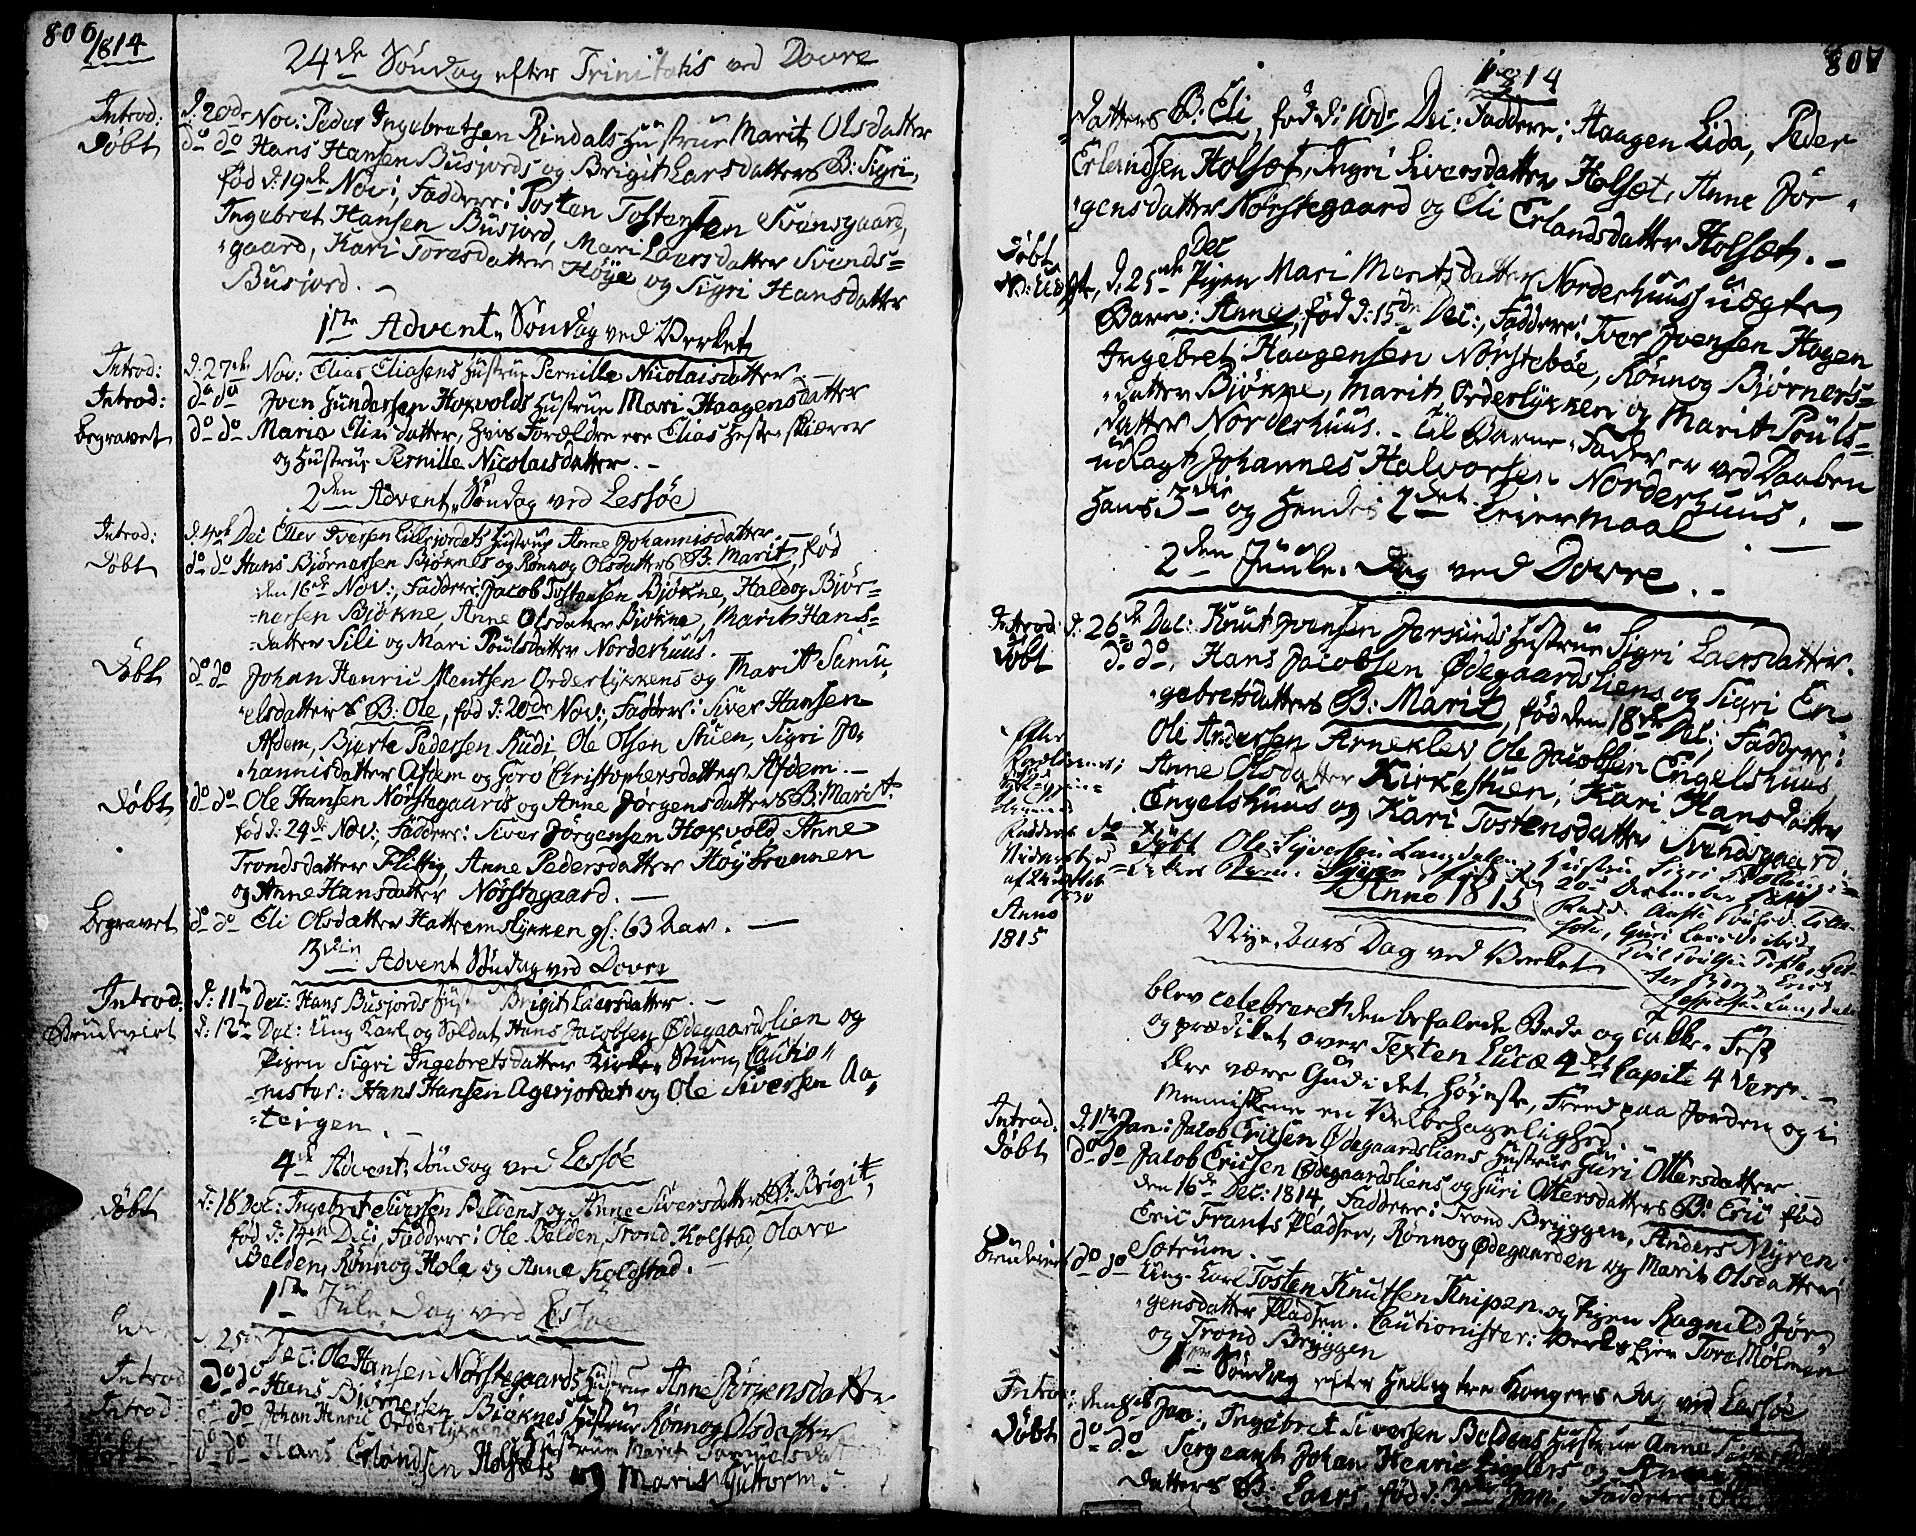 806
1814
24de Søndag efter Trinitatis ved Dovre
Introd: d: 20de Nov: Peder Ingebretsen Rindals Hustrue Marit Olsdatter
Døbt do do Hans Hansen Busjords og Brigit Larsdatters B: Sigri,
fød d: 19de Nov:, Faddere: Tosten Tostensen Svensgaard,
Ingebret Hansen Busjord, Mari Laersdatter Svends=
gaard, Kari Toresdatter Høye og Sigri Hansdatter
Busjord. —
1ste Advent Søndag ved Verket
Introd: d: 27de Nov: Elias Eliasens Hustrue Pernille Nicolaisdatter. —
Introd: do do Joen Gundersen Hoxvolds Hustrue Mari Haagensdatter
Begravet do do Maria Eliædatter, hvis Forældre ere Elias
og Hustrue Pernille Nicolaisdatter. —
2den Advent Søndag ved Lessøe
Introd: d: 4de Dec: Ellev Iversen Lillejordets Hustrue Anne Johannisdatter.
Døbt do do Hans Bjørnersen Bjøknes og Rønnog Olsdatters B: Marit, fød
den 16de Nov:, Faddere: Jacob Tostensen Bjøkne, Haldog Bjør=
nersen Bjøkne, Anne Olsdatter Bjøkne, Marit Hans=
datter Sili og Mari Poulsdatter Norderhuus.
Døbt do do Johan Henric Mentsen Orderløkkens og Marit Samu
elsdatters B: Ole, fød d: 20de Nov:, Faddere: Siver Hansen
Afdem, Bjerte Pedersen Rudi, Ole Olsen Stuen, Sigri Jo=
hannisdatter Afdem og Goro Christophersdatter Afdem. —
Døbt do do Ole Hansen Nørstegaards og Anne Jørgensdatters B: Marit
fød d: 24de Nov:, Faddere: Siver Jørgensen Hoxvold, Anne
Trondsdatter Flittig, Anne Pedersdatter Høybrennen
og Anne Hansdatter Nørstegaard. —
Begravet do do Eli Olsdatter Hattremsløkken gl: 63 Aar. —
3die Advent Søndag ved Dovre
Introd: d: 11te Dec: Hans Busjords Hustrue Brigit Laersdatter. —
Brudeviet d: 12te Dec: Ung Karl og Soldat Hans Jacobsen Ødegaardslien og
Pigen Sigri Ingebretsdatter Kirke Stuen, Cautio
nister: Hans Hansen Agerjordet og Ole Siversen Aa
teigen. —
4de Advent Søndag ved Lessøe
Døbt d: 18 Dec: Ingebret Siversen Beldens og Anne Siversdatters B: Brigit,
fød d: 14de Dec:, Faddere: Ole Belden, Trond Kolstad, Olave
Belden, Rønnog Hole og Anne Kolstad. —
1ste Jule Dag ved Lessøe
d: 25de Dec: Ole Hansen Nørstegaards Hustrue Anne Jørgensdatter
Introd do do Hans Bjørnersen Bjøknes Hustrue Rønnog Olsdatter
Introd do do Johan Henric Orderløkkens Hustrue Marit Samuelsdat
Døbt do do Hans Erlandsen Holsets og Marit Guttorms
807
1814
datters B: Eli, fød d: 10de Dec: Faddere: Haagen Lida, Peder
Erlandsen Holset, Sigri Siversdatter Holset, Anne Jør
gensdatter Nørstegaard og Eli Erlandsdatter Holset. —
Døbt
N: Uægte, d: 25de Dec Pigen Mari Mentsdatter Norderhuus uægte
Barn: Anne, fød d: 15de Dec:, Faddere: Iver Joensen Hagen
Ingebret Haagensen Nørstebøe, Rønnog Bjørners=
datter Bjøkne, Marit Orderløkken og Marit Pouls=
datter Norderhuus. — Til Barne Fader er ved Daaben
udlagt Johannes Halvorsen Norderhuus.
Hans 3die og hendes 2det Leiermaal. —
2den Juule Dag ved Dovre. —
Introd: d: 26de Dec: Knut Joensen Hustrue Sigri Laersdatter.
Døbt do do, Hans Jacobsen Ødegaardsliens og Sigri En
gebretsdatters B: Marit, fød den 18de Dec:, Faddere:
Ole Andersen Arneklev, Ole Jacobsen Engelshuus,
Anne Olsdatter Kirkestuen, Kari Hansdatter
Engelshuus og Kari Tostensdatter Svendsgaard.
Efter
Anno
1815
do Døbt Ole Syversen Hustrue Sigri
20de December
Anno 1815
Nye Aars Dag ved Verket
blev celebreret den befalede Bede og Takke Fest
og prædiket over Texten Lucæ Capite 4 Vers. —
Ære være Gud i det Høyeste, Freed paa Jorden og i
Menniskene en Velbehagelighed. —
Introd: d: 1ste Jan: Jacob Ericsen Ødegaardsliens Hustrue Guri Ottersdatter. —
Døbt do do Jacob Ericsen Ødegaardsliens og Guri Ottersdatters B: Eric fød
den 16de Dec: 1814, Faddere: Trond Bryggen, Anders Myren
Eric Frants Pladsen, Rønnog Ødegaarden og Marit Olsdatter
Sotrum. —
Brudeviet do do Ung Karl Tosten Knutsen Knipen og Pigen Ragnild Jør
gensdatter Pladsen. Cautionister: Verks Eier Tore Mølmen
og Trond Bryggen
1ste Søndag efter Hellig tre Kongers Dag ved Lessøe
Introd: den 8de Jan:, Ingebret Siversen Beldens Hustrue Anne Siversdatter
Døbt do do Sergeant Johan Henric Zieglers og
datters B: Laers, fød d: 3de Jan:, Faddere: Ole